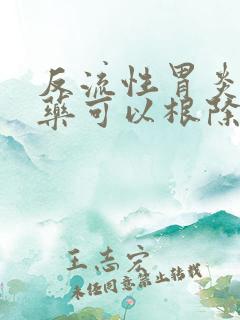 反流性胃炎
药可以根除
王志宏
未经同意禁止转载